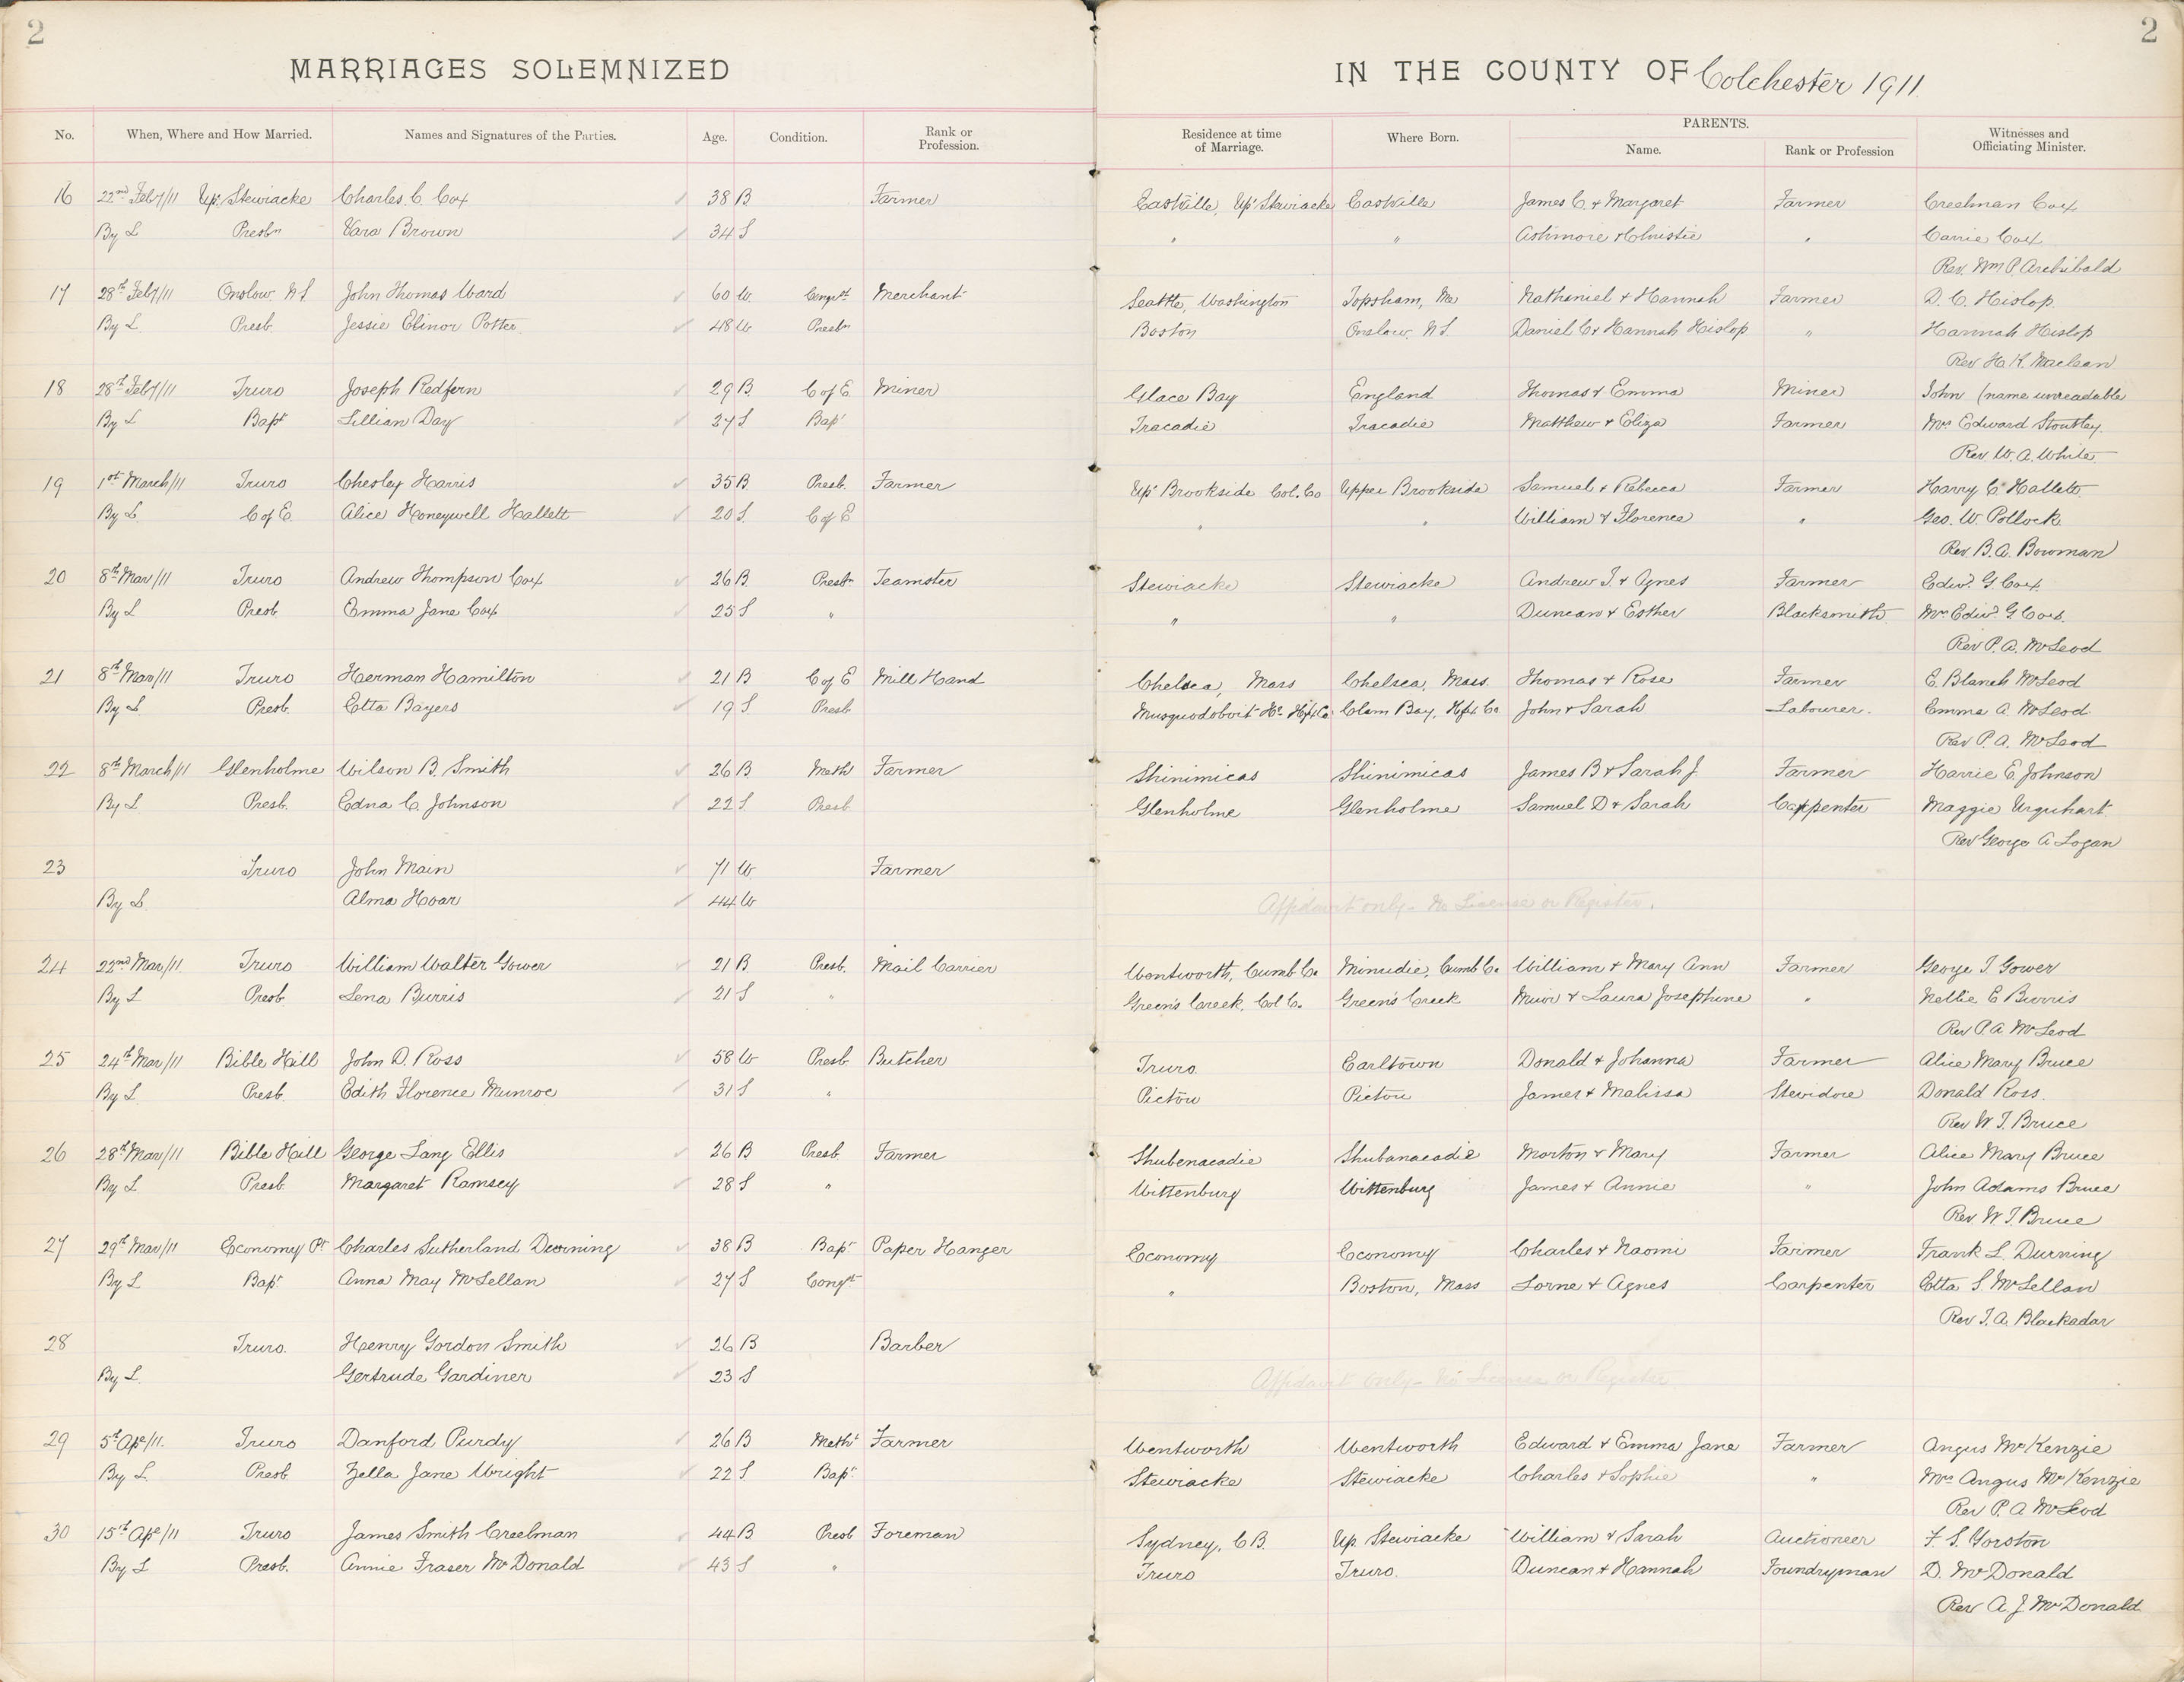 2
2
MARRIAGES SOLEMNIZED IN THE COUNTY OF Colchester 1911
No. When, Where and How Married. Names and Signatures of the Parties. Age. Condition. Rank or Profession. Residence at time of Marriage. Where Born. PARENTS. Name. Rank or Profession Witnesses and Officiating Minister.
16 22nd Feb'y/11 Up. Stewiacke Charles C. Cox 38 B Farmer Eastville, Up. Stewiacke Eastville James C. & Margaret Farmer Creelman Cox
By L Presbn Vara Brown 34 S " " Ashmore & Christie " Carrie Cox
Rev. Wm P. Archibald
17 28th Feb'y/11 Onslow N.S. John Thomas Ward 60 W. Congr'l Merchant Seattle, Washington Topsham, Me Nathaniel & Hannah Farmer D. C. Hislop
By L. Presb. Jessie Elinor Potter 48 W Presbn Boston Onslow, N.S. Daniel C & Hannah Hislop " Hannah Hislop
Rev H. K. Maclean
18 28th Feb'y/11 Truro Joseph Redfern 29 B. C of E. Miner Glace Bay England Thomas & Emma Miner John (name unreadable
By L Bapt Lillian Day 27 S Bap' Tracadie Tracadie Matthew & Eliza Farmer Mrs Edward Stoutley.
Rev W. A. White
19 1st March/11 Truro Chesley Harris 35 B. Presb. Farmer Up' Brookside Col. Co Upper Brookside Samuel & Rebecca Farmer Harry C Hallett
By L. C of E. Alice Honeywell Hallett 20 S. C of E " " William & Florence " Geo. W. Pollock
Rev. B. A. Bowman
20 8th Mar/11 Truro Andrew Thompson Cox 26 B. Presbn Teamster Stewiacke Stewiacke Andrew T. & Agnes Farmer Edwd G. Cox
By L Presb. Emma Jane Cox 25 S " " " Duncan & Esther Blacksmith Mrs Edwd G Cox.
Rev P. A. McLeod
21 8th Mar/11 Truro Herman Hamilton 21 B C of E Mill Hand Chelsea, Mass Chelsea, Mass. Thomas & Rose Farmer E. Blanch McLeod
By L Presb. Etta Bayers 19 S. Presb Musquodoboit Hr. Hfx Co. Clam Bay, Hfx. Co John & Sarah Labourer. Emma A. McLeod
Rev P. A. McLeod
22 8th March/11 Glenholme Wilson B. Smith 26 B Meth' Farmer Shinimicas Shinimicas James B & Sarah J. Farmer Harrie E. Johnson
By L Presb. Edna C. Johnson 22 S. Presb. Glenholme Glenholme Samuel D & Sarah Carpenter Maggie Urquhart
Rev George A Logan
23 Truro John Main 71 W. Farmer
By L. Alma Hoar 44 W Affidavit only - No License or Register.
24 22nd Mar/11 Truro William Walter Gower 21 B Presb. Mail Carrier Wentworth, Cumb. Co. Minudie, Cumb Co. William & Mary Ann Farmer George T. Gower
By L Presb. Lena Burris 21 S " Green's Creek, Col Co. Green's Creek Muir & Laura Josephine " Nellie E Burris
Rev P. A. McLeod
25 24th Mar/11 Bible Hill John D. Ross 58 W Presb. Butcher Truro. Earltown Donald & Johanna Farmer Alice Mary Bruce
By L. Presb. Edith Florence Munroe 31 S " Pictou Pictou James & Malissa Stevidore Donald Ross.
Rev W. T. Bruce
26 28th Mar/11 Bible Hill George Lang Ellis 26 B Presb. Farmer Shubenacadie Shubanacadie Morton & Mary Farmer Alice Mary Bruce
By L Presb. Margaret Ramsey 28 S " Wittenburg Wittenburg James & Annie " John Adams Bruce
Rev W. T. Bruce
27 29th Mar/11 Economy Pt Charles Sutherland Durning 38 B Bap' Paper Hanger Economy Economy Charles & Naomi Farmer Frank L Durning
By L Bap' Anna May McLellan 27 S Congl " Boston, Mass Lorne & Agnes Carpenter Etta S. McLellan
Rev T. A. Blackadar
28 Truro. Henry Gordon Smith 26 B Barber
By L. Gertrude Gardiner 23 S Affidavit only - No License or Register
29 5th Ap'/11. Truro Danford Purdy 26 B Meth' Farmer Wentworth Wentworth Edward & Emma Jane Farmer Angus McKenzie
By L. Presb. Zella Jane Wright 22 S. Bap' Stewiacke Stewiacke Charles & Sophie " Mrs Angus McKenzie
Rev P. A McLeod
30 15th Ap'/11 Truro James Smith Creelman 44 B Presb Foreman Sydney, C.B. Up. Stewiacke William & Sarah Auctioneer F. S. Yorston
By L Presb. Annie Fraser McDonald 43 S " Truro Truro. Duncan & Hannah Foundryman D. McDonald
Rev A. J. McDonald